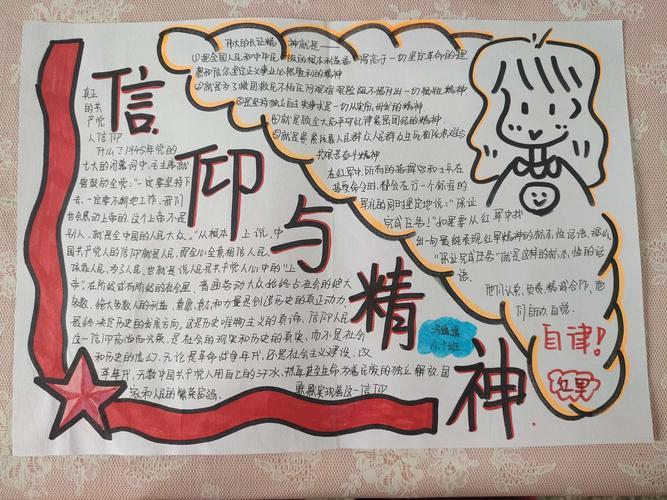 信仰与精神
真正
的共
产党
人信仰
什么?1945年党的
七大的闭幕词中,毛主席就
曾鼓励全党:"一定要坚持下
去,一定要不断地工作,我们
也会感动上帝的。这个上帝不是
别人,就是全中国的人民大众。"从根本上说,中
国共产党人的信仰就是人民,即全心全意相信人民、
依靠人民、为了人民,也就是说人民是共产党人心中的"上
帝"。在阶级或有阶级的社会里,普通劳动大众始终占社会的绝大
多数,绝大多数人的利益、意愿、意志和力量是创造历史的真正动力,
最终决定历史的发展方向,这是历史唯物主义的真谛。信仰人民
这一信仰高尚而光荣,是社会的现实和历史的真实,而不是社会
和历史的虚幻。无论是革命战争年代,还是社会主义建设、改
革年代,无数中国共产党人用自己的汗水、热血甚至生命为着民族的独立、解放、国
家和人民的繁荣富强,
伟大的长征精神就是——
①把全国人民和中华民族的根本利益看得高于一切,坚定革命的理
想和信念,坚定正义事业必然胜利的精神
②就是为了救国救民,不怕任何艰难险阻,不惜付出一切牺牲精神
③是坚持独立自主,实事求是,一切从实际出发的精神
④就是顾全大局、严守纪律、紧密团结的精神
⑤就是紧紧依靠人民群众,
艰苦奋斗精神
在红军中,所有的指挥官和士兵在
接受命令时,都会在行一个标准的
军礼的同时坚定地说:"保证
完成任务!"如果要从红军中找
出一句最能表现红军精神的标志性话语,那么
"保证完成任务"就是这样的标志性的话
语。
他们认真、负责、精诚合作,他
们自动、自觉。
自律!
红军